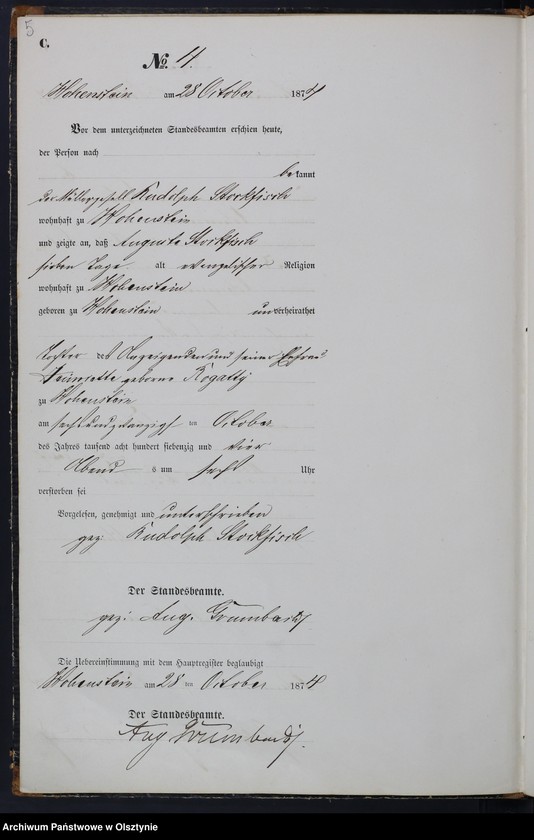 5
C.
No. 11.
Hohenstein am 28 October 1874
Vor dem unterzeichneten Standesbeamten erschien heute,
der Person nach
bekannt
der Müllergesell Rudolph Storkfisch
wohnhaft zu Hohenstein
und zeigte an, daß Auguste Storkfisch
sieben Tage alt evangelischer Religion
wohnhaft zu Hohenstein
geboren zu Hohenstein unverheirathet
Tochter des Anzeigenden und seiner Ehefrau
geborne Rogatty
zu Hohenstein
am sechsundzwanzigst ten October
des Jahres tausend acht hundert siebenzig und vier
Abends um sechs Uhr
verstorben sei
Vorgelesen, genehmigt und unterschrieben
gez: Rudolph Storkfisch
Der Standesbeamte.
gez: Aug. Grumbach
Die Uebereinstimmung mit dem Hauptregister beglaubigt
Hohenstein am 28 ten October 1874
Der Standesbeamte.
Aug Grumbach.
Archiwum Państwowe w Olsztynie